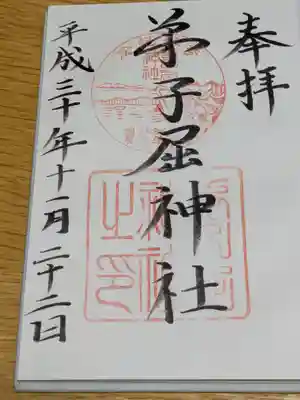 奉拝
弟子屈神社
平成三十年十一月二十二日